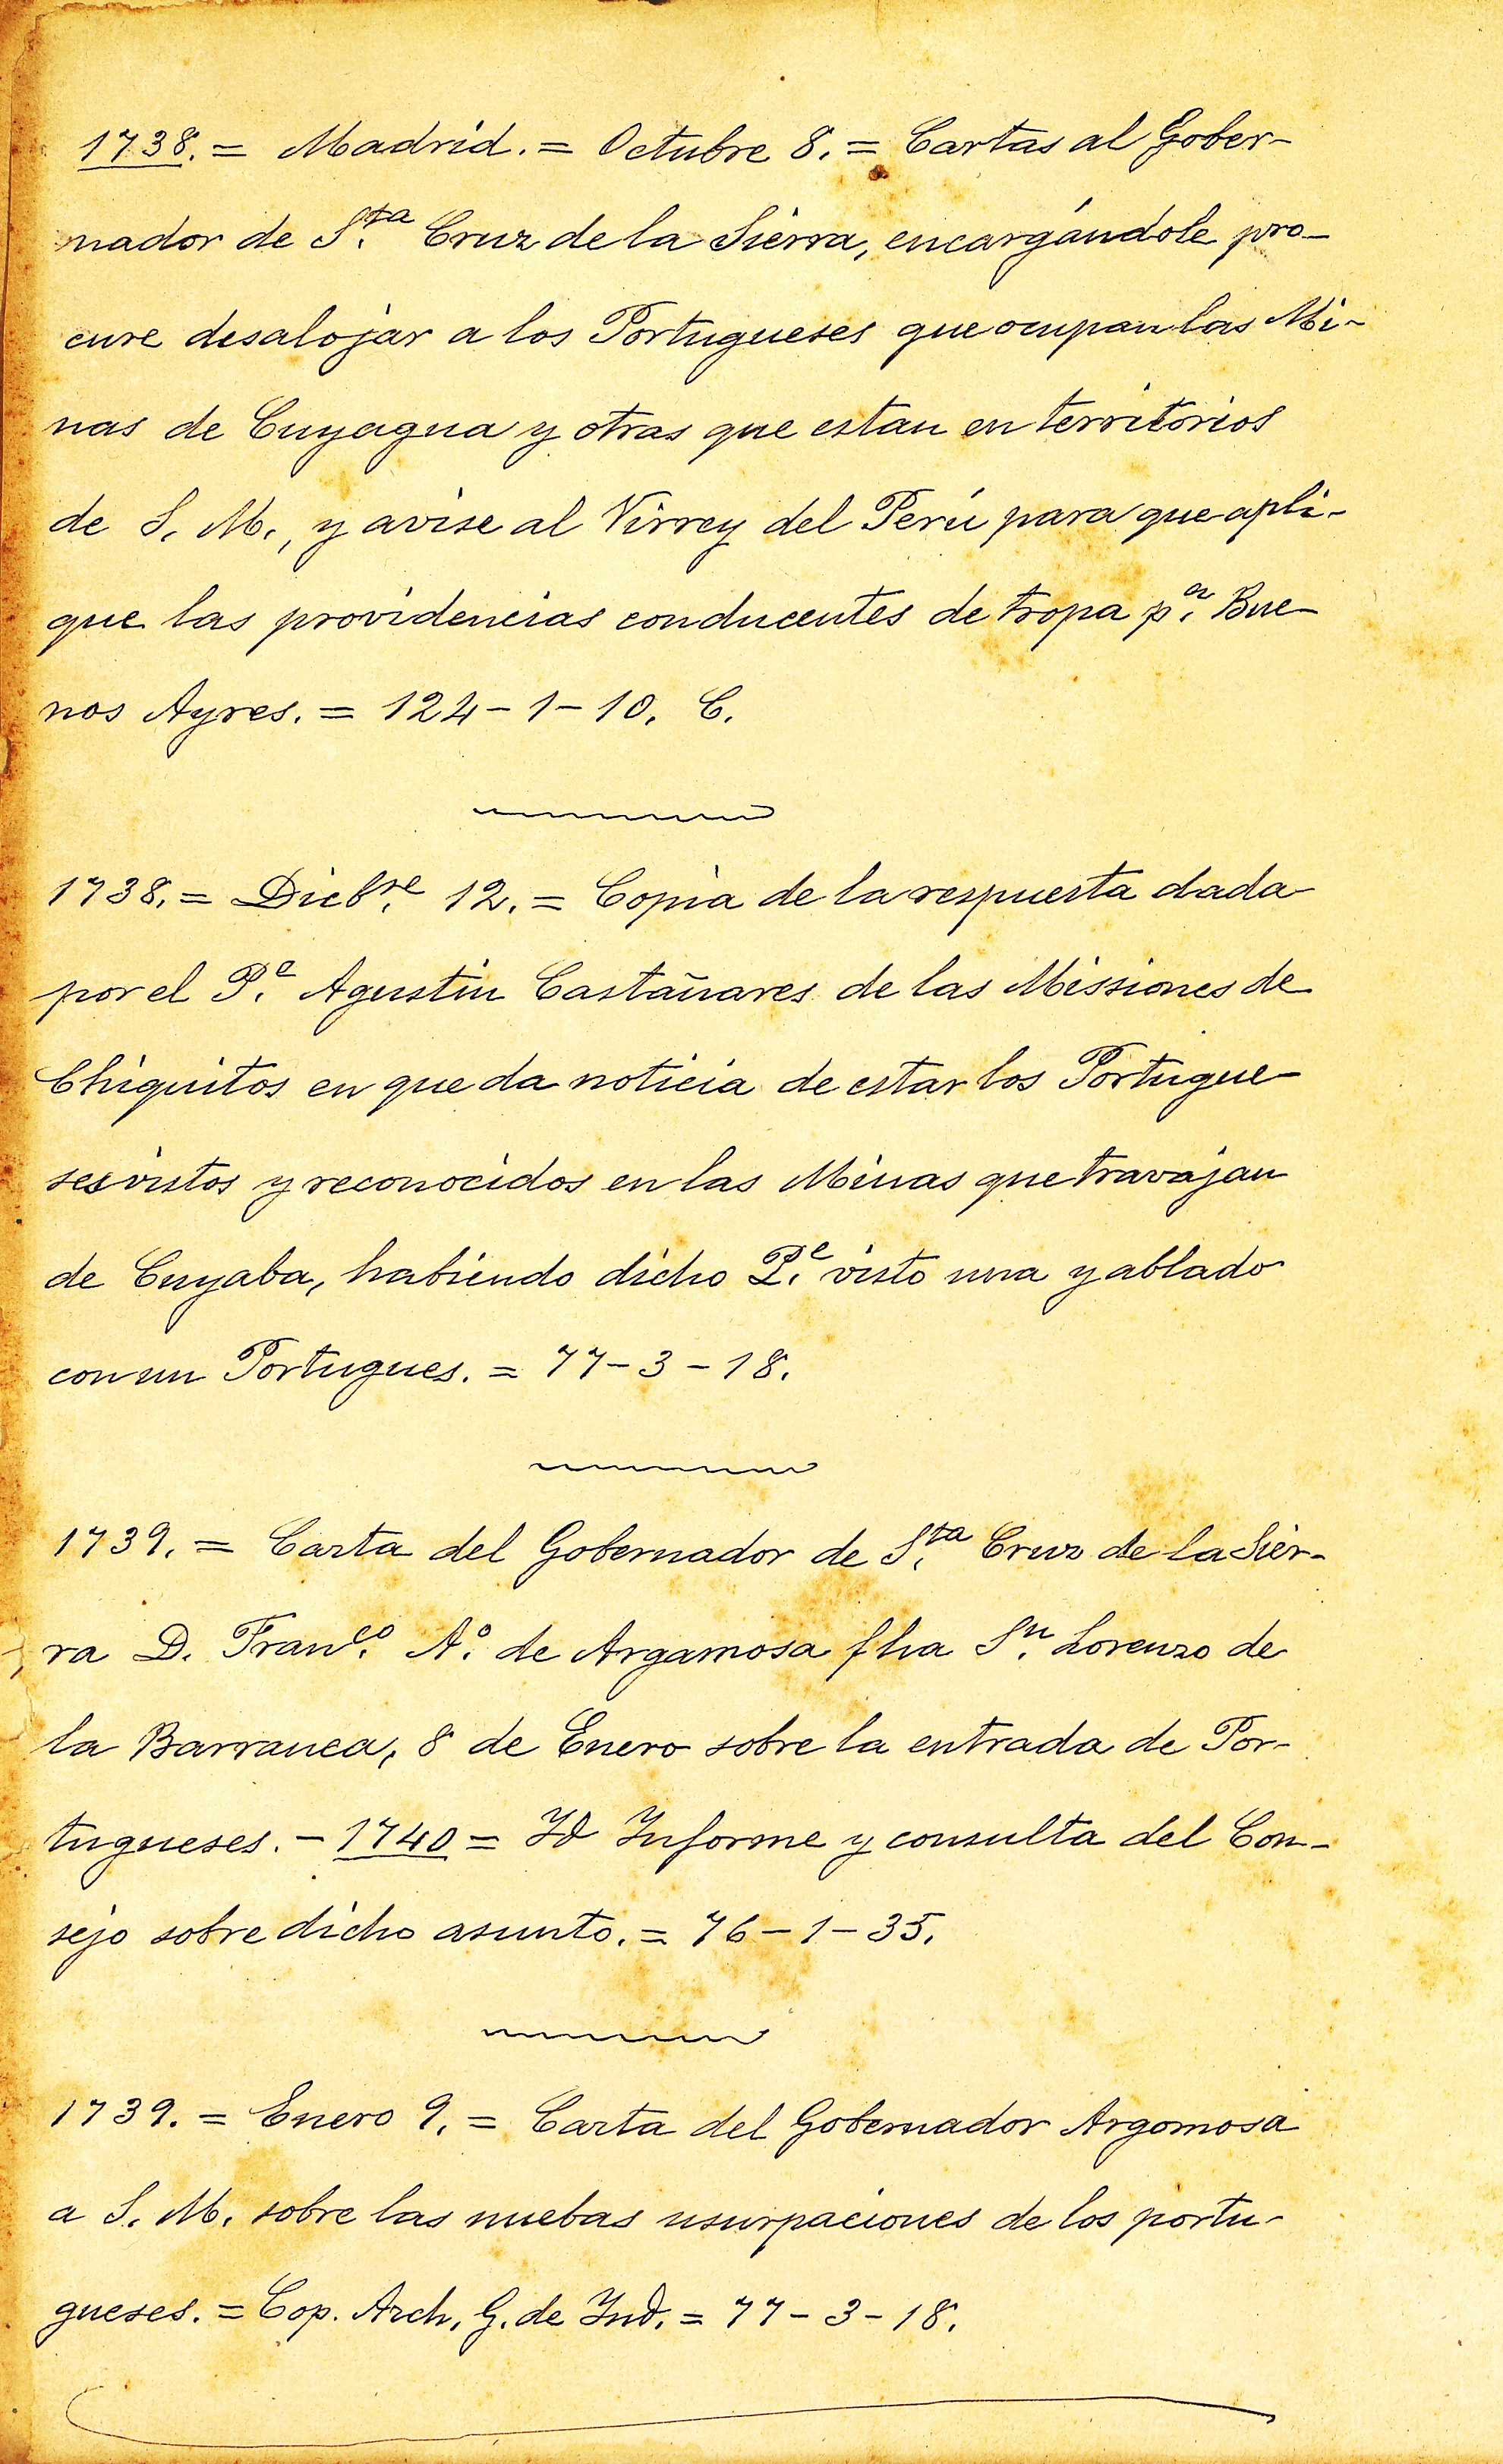 1738. = Madrid. = Octubre 8. = Cartas al Gober-
nador de S.ta Cruz de la Sierra, encargándole pro-
cure desalojar a los Portugueses que ocupan las Mi-
nas de Cuyagua y otras que estan en territorios
de S. M., y avise al Virrey del Perú para que apli-
que las providencias conducentes de tropa p.a Bue-
nos Ayres. = 124-1-10. C.
1738. = Dicb.re 12. = Copia de la respuesta dada
por el P.e Agustin Castañares de las Missiones de
Chiquitos en que da noticia de estar los Portugue-
ses vistos y reconocidos en las Minas que travajan
de Cuyaba, habiendo dicho P.e visto una y ablado
con un Portugues. = 77-3-18.
1739. = Carta del Gobernador de S.ta Cruz de la Sier-
ra D. Franc.co A.o de Argamosa fha S.n Lorenzo de
la Barranca, 8 de Enero sobre la entrada de Por-
tugueses. - 1740 = Id Informe y consulta del Con-
sejo sobre dicho asunto. = 76-1-35.
1739. = Enero 9. = Carta del Gobernador Argomosa
a S. M. sobre las nuebas usurpaciones de los portu-
gueses. = Cop. Arch. G. de Ind. = 77-3-18.